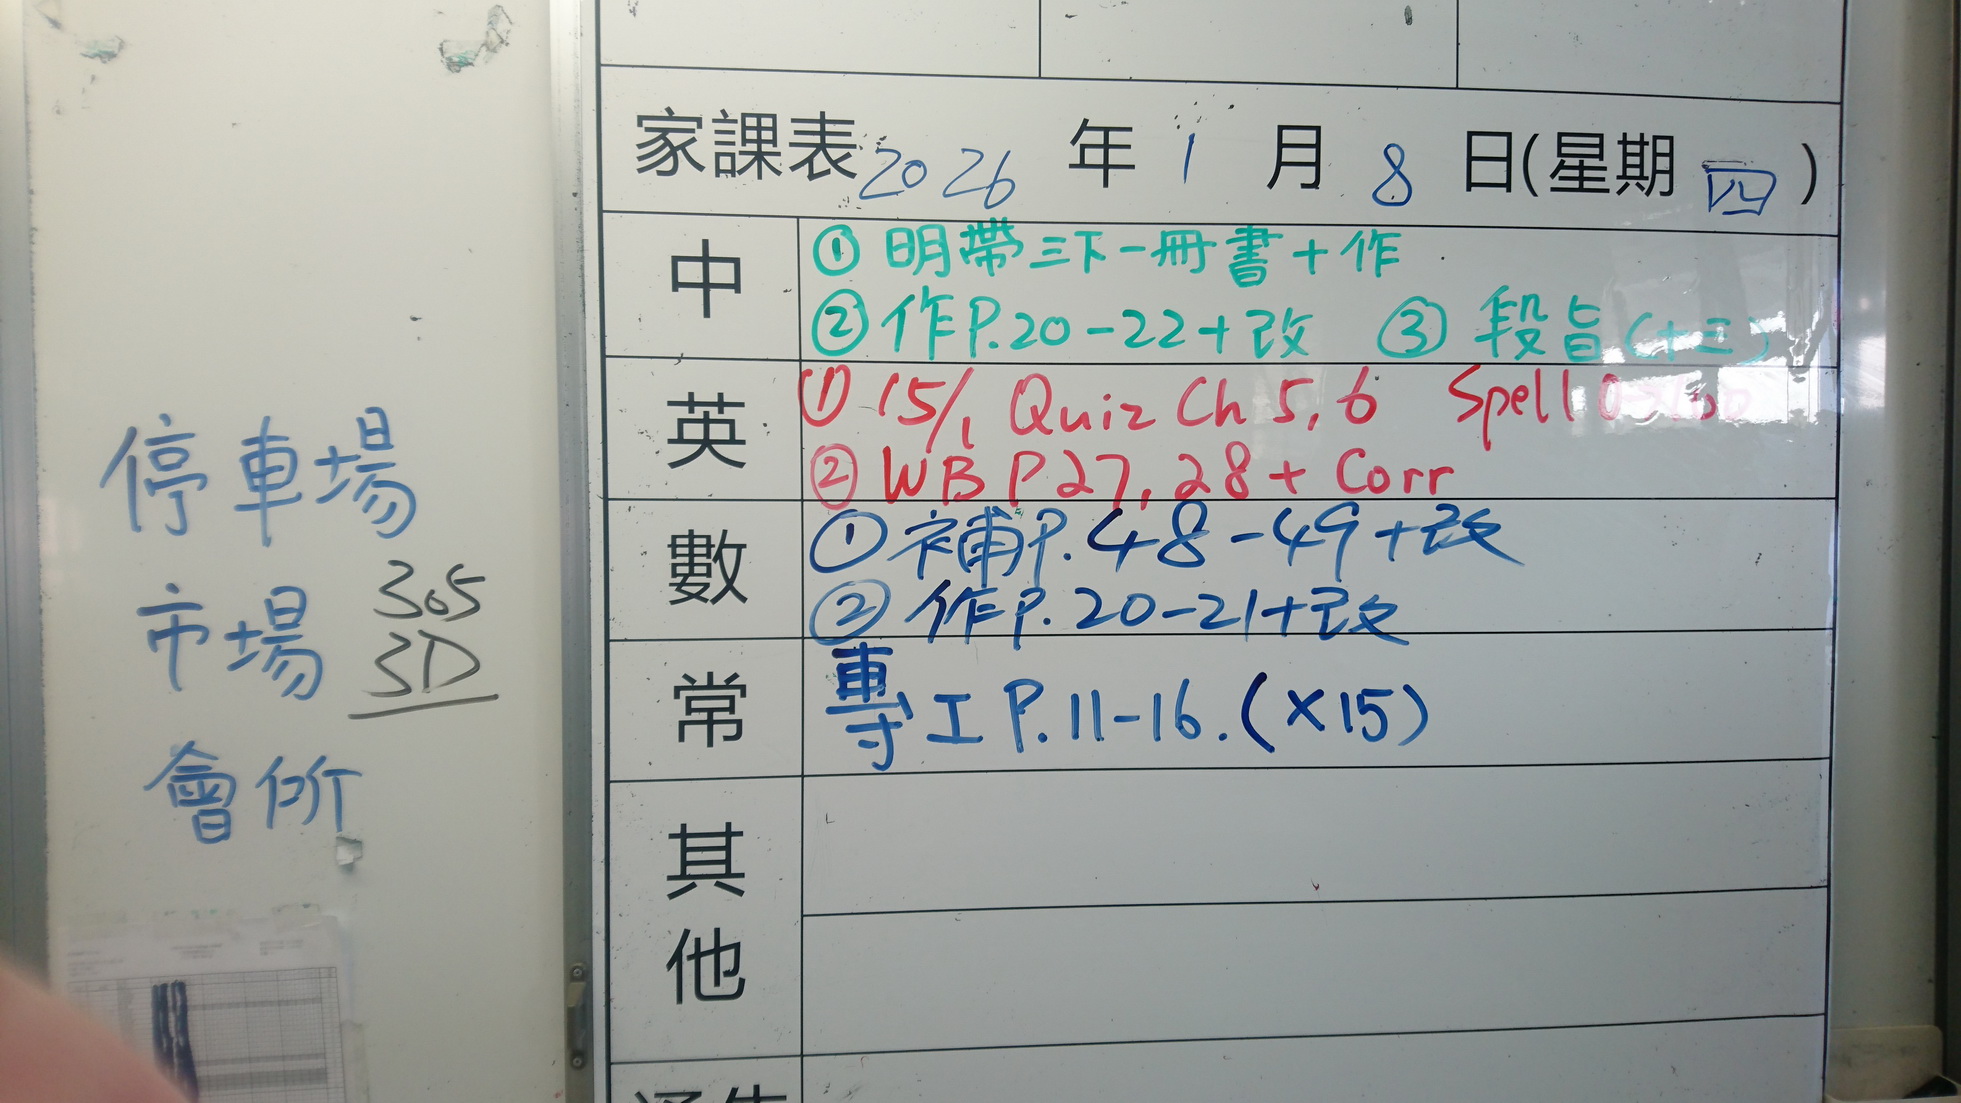 停車場
市場
305
3D
會所
家課表 2026 年 1 月 8 日(星期四)
中
① 明帶三下一冊書+作
② 作P.20-22+改 ③ 段旨(十三)
英
① 15/1 Quiz Ch 5, 6 Spell
② WB P 27, 28 + Corr
數
① 補P.48-49+改
② 作P.20-21+改
常
專工P.11-16.(×15)
其他